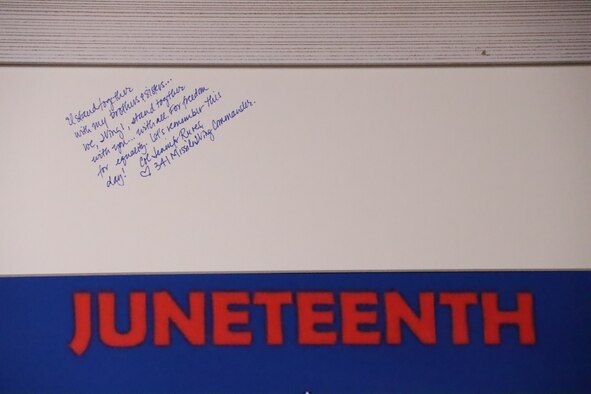 I stand together
with my brothers & sisters...
We, Wing 1, stand together
with you... with all. For freedom
for equality. Let's remember this
day! Col Jennifer Reeves
♡ 341 Missile Wing Commander.
JUNETEENTH